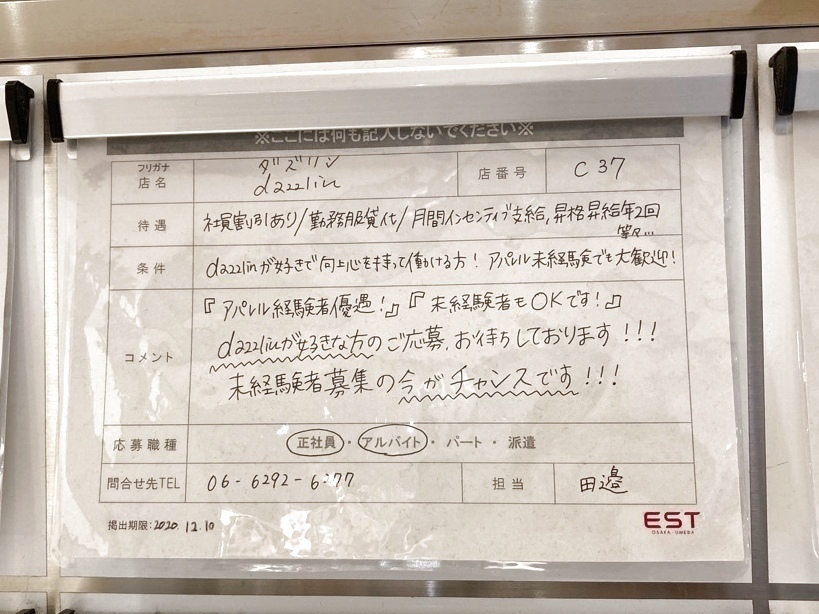 ※ここには何も記入しないでください※
フリガナ ダズリン
店名 dazzlin 店番号 C 37
待遇 社員割引あり/勤務服貸付/月間インセンティブ支給,昇格昇給年2回
等々...
条件 dazzlinが好きで向上心を持って働ける方! アパレル未経験でも大歓迎!
『アパレル経験者優遇!』『未経験者もOKです!』
コメント dazzlinが好きな方のご応募、お待ちしております!!!
未経験者募集の今がチャンスです!!!
応募職種 正社員・アルバイト・パート・派遣
問合せ先TEL 06-6292-6277 担当 田邉
掲出期限:2020.12.10
EST
OSAKA・UMEDA